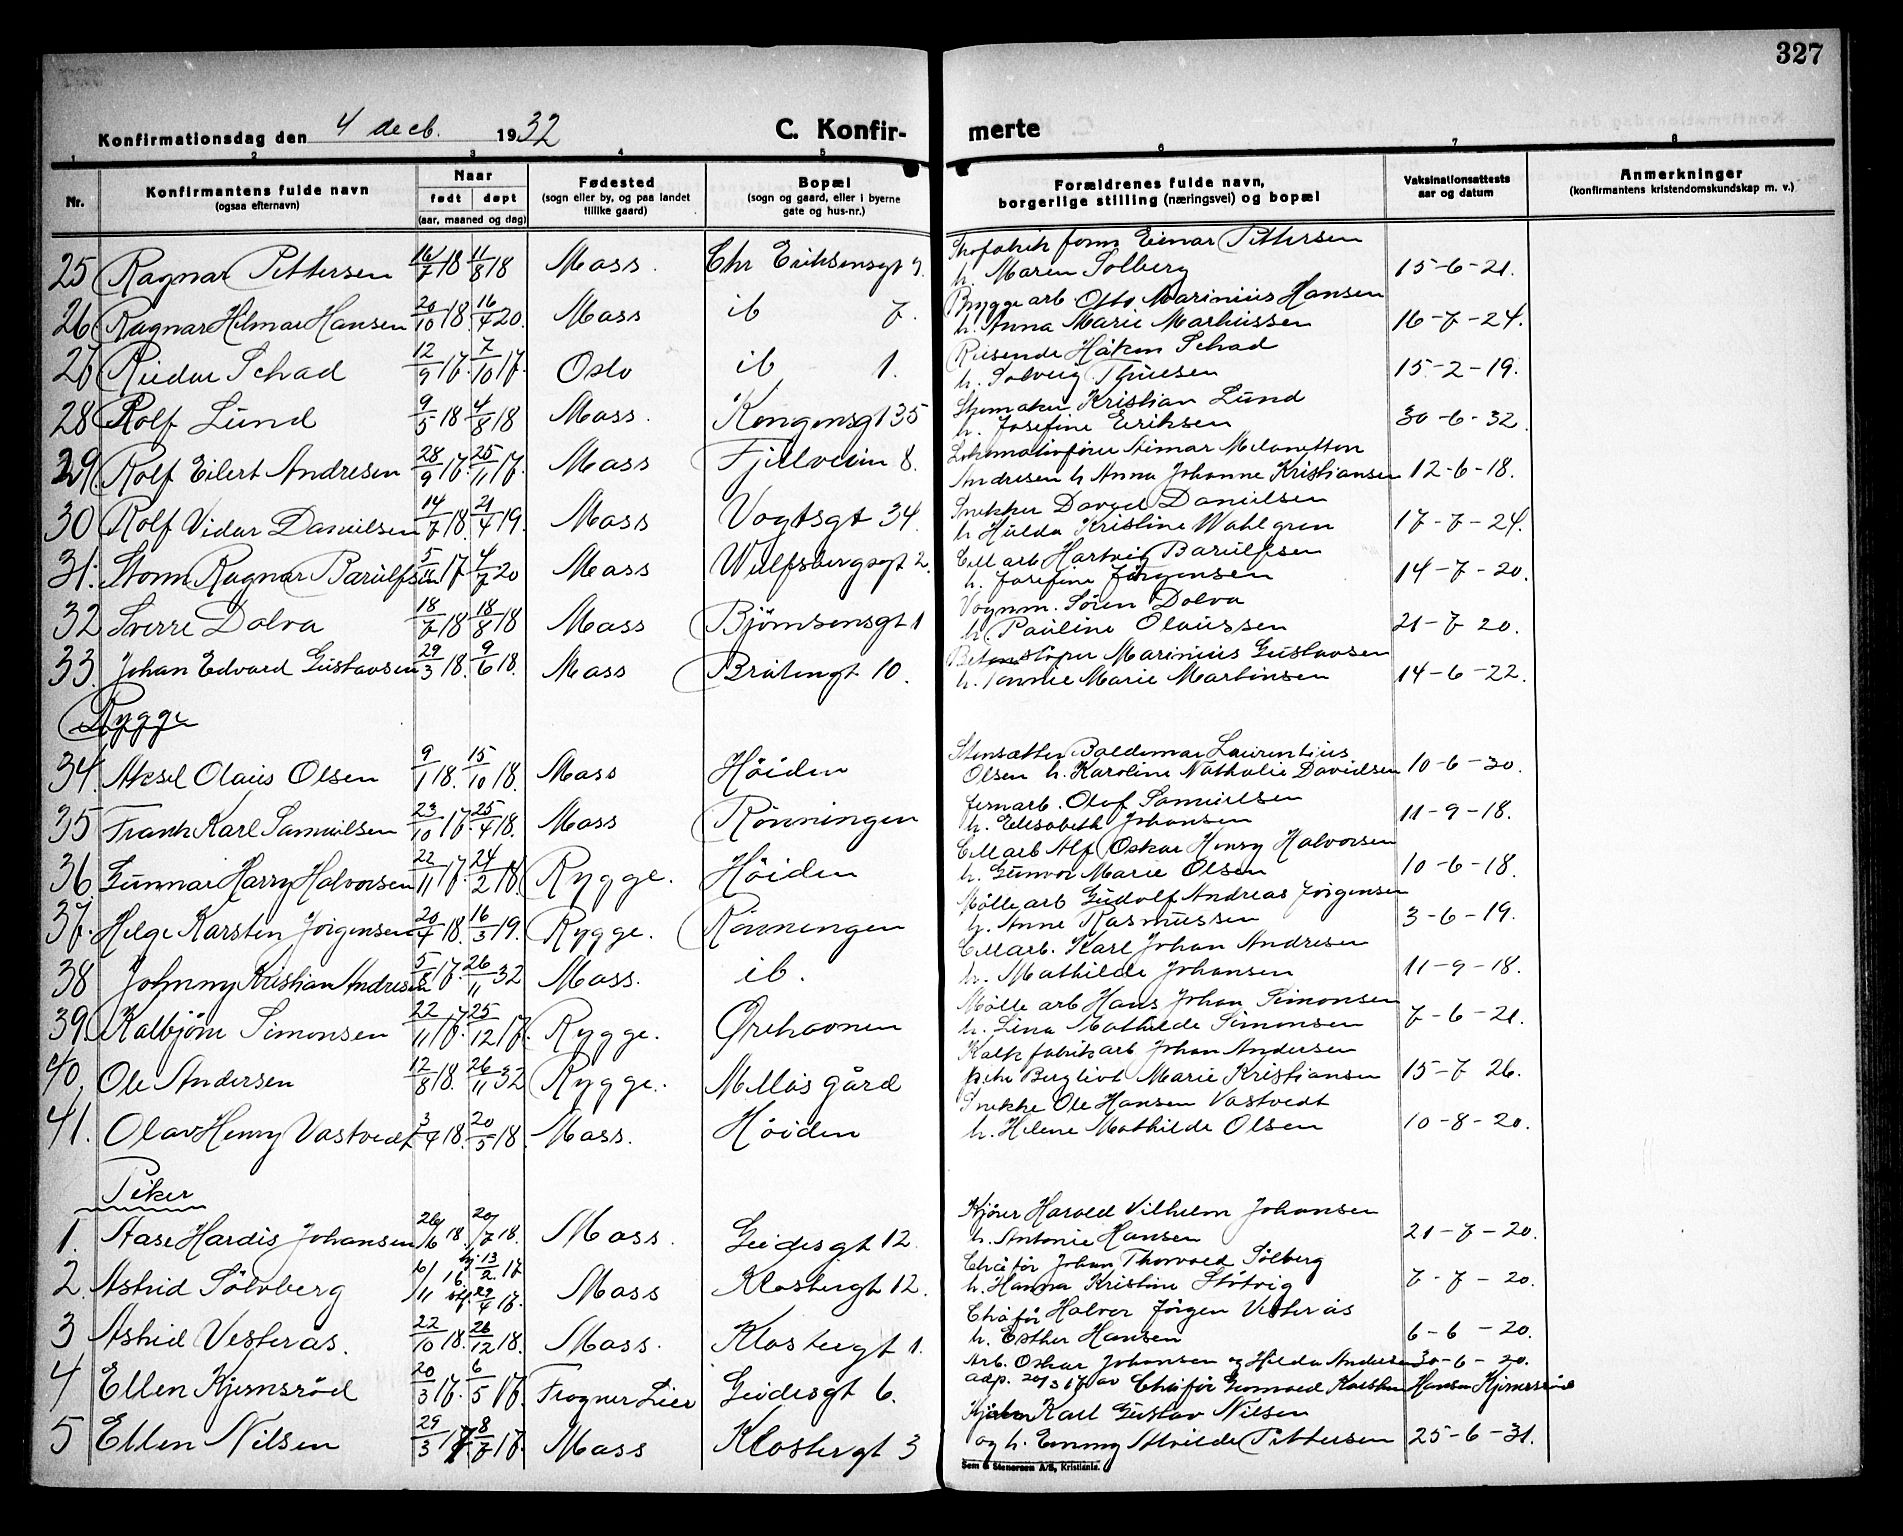 327
Konfirmationsdag den 4 decb. 1932
C. Konfir-
merte
1 2 3 4 5 6 7 8
Nr.
Konfirmantens fulde navn
(ogsaa efternavn)
Naar
født døpt
(aar, maaned og dag)
Fødested
(sogn eller by, og paa landet
tillike gaard)
Bopæl
(sogn og gaard, eller i byerne
gate og hus-nr.)
Forældrenes fulde navn,
borgerlige stilling (næringsvei) og bopæl
Vaksinationsattests
aar og datum
Anmerkninger
(konfirmantens kristendomskundskap m. v.)
25 Ragnar Pettersen 16/7 18 11/8 18 Moss. Chr Eriksensgt 9.
Einar Pettersen
h. Maren Solberg 15-6-21.
26 Ragnar Hilmar Hansen 20/10 18 16/4 20. Moss ib 7.
Brygge arb. Otto Marinius Hansen
h. Anna Marie Markussen 16-7-24.
27 Reidar Schad 12/9 17. 7/10 17. Oslo ib 1.
Reisende Håkon Schad
h. Solveig Thuesen 15-2-19.
28 Rolf Lund 9/5 18 4/8 18 Moss. Kongensgt 35
Skomaker Kristian Lund
h. Josefine Eriksen 30-6-32.
29 Rolf Eilert Andresen 28/9 17. 25/11 17. Moss Fjellveien 8.
Lokomotivfører Melanetton
Andresen h Anna Johanne Kristiansen 12-6-18.
30 Rolf Vidar Danielsen 14/7 18. 21/4 19. Moss Vogtsgt 34.
Snekker David Danielsen
h Hulda Kristine Wahlgren 17-7-24.
31. Ragnar Barulfsen 5/11 17 4/7 20 Moss Wulfsbergsgt 2.
Cell arb Hartvig Barulfsen
h. Josefine Jørgensen 14-7-20.
32 Sverre Dolva 18/7 18 18/8 18 Moss Bjørnsensgt 1
Vognm. Søren Dolva
h. Pauline Olaussen 21-7 20.
33. Johan Edvard Gustavsen 29/3 18. 9/6 18. Moss Bråtengt 10.
Betonstøper Marinius Gustavsen
h. Marie Martinsen 14-6-22.
Rygge
34. Aksel Olaus Olsen 9/1 18. 15/10 18. Moss Höiden
Stensætter Laurentius
Olsen h. Karoline Nathalie Davidsen 10-6-30.
35 Frank Karl Samuelsen 23/10 17. 25/4 18. Moss Rönningen
Jernarb. Olof Samuelsen
h. Elisabeth Johansen 11-9-18.
36. Gunnar Harry Halvorsen 22/11 17. 24/2 18. Rygge. Höiden
Cell arb Alf Oskar Henry Halvorsen
h. Gunvor Marie Olsen 10-6-18.
37. Helge Karsten Jørgensen 20/4 18. 16/3 19. Rygge. Rönningen
Mølle arb Gudolf Andreas Jørgensen
h. Anne Rasmussen 3-6-19.
38 Johnny Kristian Andresen 5/8 17. 26/11 32 Moss. ib.
Cell arb. Karl Johan Andresen
h. Mathilde Johansen 11-9-18.
39. Kolbjörn Simonsen 22/11 17. 25/12 17. Rygge. Örehavnen
Mølle arb Hans Johan Simonsen
h. Lina Mathilde Simonsen 7-6-21.
40. Ole Andersen 12/8 18. 26/11 32 Rygge. Melløs gård
Kalkfabrikarb Johan Andersen
Bergliot Marie Kristiansen 15-7 26.
41. Olav Henry Vastvedt 3/4 18. 20/5 18. Moss. Höiden
Snekke Ole Hansen Vastvedt
h. Helene Mathilde Olsen 10-8-20.
Piker
1. Aase Hardis Johansen 26/6 18. 20/7 18. Moss. Geidesgt 12
Kjører Harald Vilhelm Johansen
h. Antonie Hansen 21-7-20.
2. Astrid Sölvberg 6/11 16 hj 13/2. 17 stf. 29/4 17. Moss Klostergt 12.
Chåfför Johan Thorvald Sölberg
h. Hanna Kristine Støtvig 7-7-20.
3 Astrid Vesterås. 22/10 18. 26/12 18. Moss. Klostergt 1.
Chåfför Halvor Jørgen Vesterås
h. Esther Hansen 6-6-20.
4 Ellen Kjernsröd 20/3 17. 6/5 17. Frogner Lier Geidesgt 6.
Arb. Oskar Johansen og Hilda Andersen 30-6-20.
adp. 20/3 17 av Chåfför Karsten Hansen Kjernsröd
5 Ellen Nilsen 29/3 17 8/7 17. Moss Klostergt 3
Karl Gustav Nilsen
og h. Emmy Alvilde Pettersen 25-6-31.
Sem & Stenersen A/S, Kristiania.